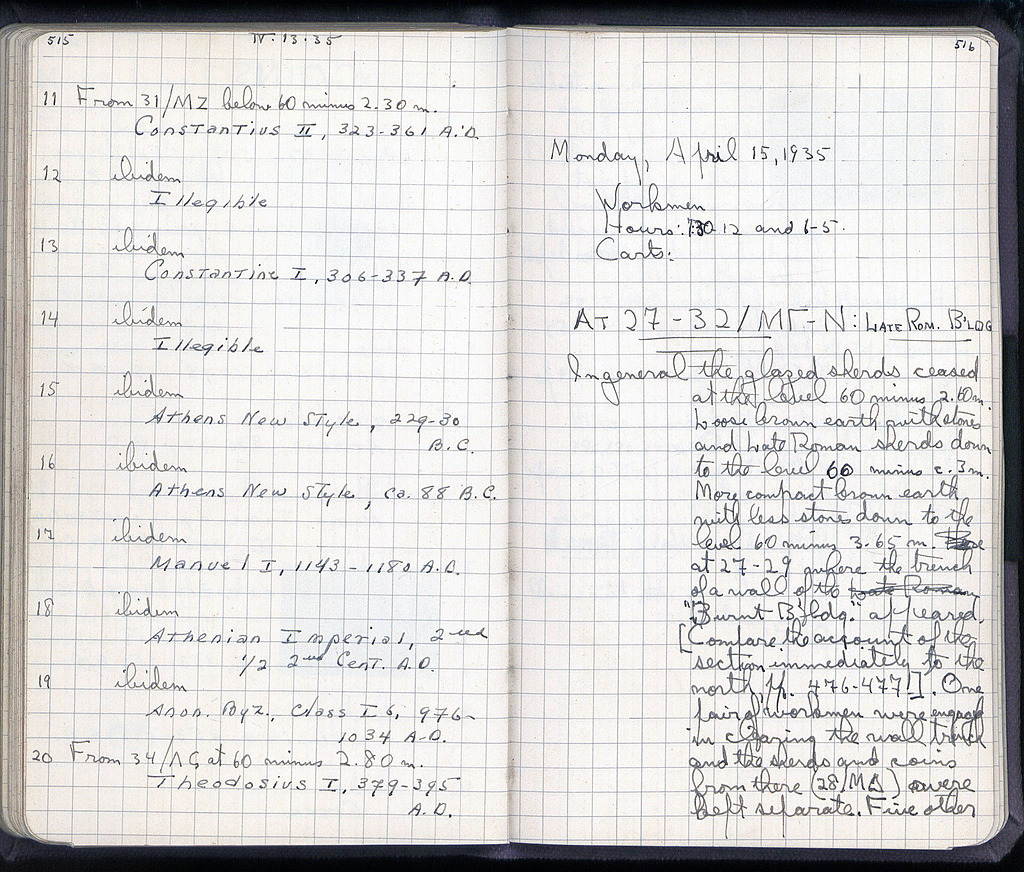 515
IV·13·35
11 From 31/MZ below 60 minus 2.30 m.
Constantius II, 323-361 A.D.
12 ibidem
Illegible
13 ibidem
Constantine I, 306-337 A.D.
14 ibidem
Illegible
15 ibidem
Athens New Style, 229-30
B.C.
16 ibidem
Athens New Style, ca. 88 B.C.
17 ibidem
Manuel I, 1143-1180 A.D.
18 ibidem
Athenian Imperial, 2nd
1/2 2nd Cent. A.D.
19 ibidem
Anon. Byz., Class I 6, 976-
1034 A.D.
20 From 34/ΛϚ at 60 minus 2.80 m.
Theodosius I, 379-395
A.D.
516
Monday, April 15, 1935
Workmen
Hours: 730-12 and 1-5.
Carts:
AT 27-32/ΜΓ-Ν: LATE ROM. B'LDG
In general the glazed sherds ceased
at the level 60 minus 2.60m.
Loose brown earth with stones
and Late Roman sherds down
to the level 60 minus c. 3 m.
More compact brown earth
with less stones down to the
level 60 minus 3.65 m.
at 27-29 where the trench
of a wall of the Late Roman
"Burnt B'ldg." appeared.
[Compare the account of the
section immediately to the
north, pp. 476-477!]. One
pair of workmen were engaged
in clearing the wall trench
and the sherds and coins
from there (28/ΜΔ) were
kept separate. Five other